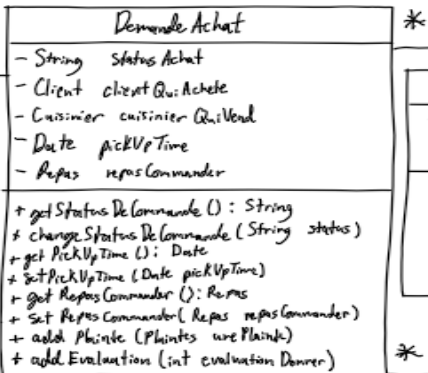 Demande Achat
*
- String status Achat
- Client client Qui Achete
- Cuisinier cuisinier QuiVend
- Date pickUpTime
- Repas repas Commander
+ getStatus De Commande () : String
+ change Status De Commande (String status)
+ get PickUpTime () : Date
+ setPickUpTime (Date pickUpTime)
+ get Repas Commander () : Repas
+ set Repas Commander (Repas repas Commander)
+ add Plainte (Plaintes une Plainte)
+ add Evaluation (int evaluation Donner)
*